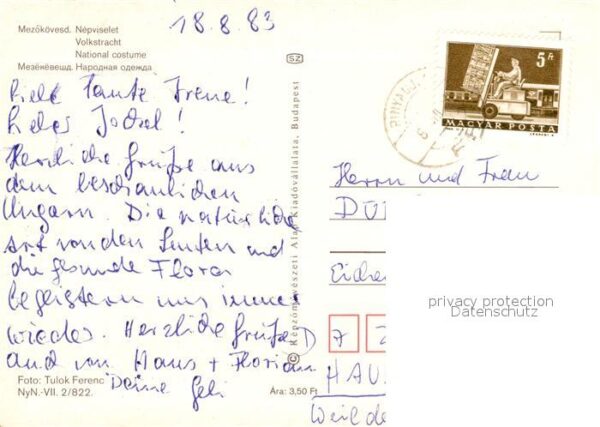 18.8.83
Mezőkövesd. Népviselet
Volkstracht
National costume
Мезёкёвешд. Народная одежда
SZ
Tante Irene!
Liebes Jockel!
Herzliche Grüße aus
dem beschaulichen
Ungarn. Die natürliche
Art von den Leuten und
die gesunde Flora
begeistern uns immer
wieder. Herzliche Grüße
auch von Hans + Florian
Deine Geli
Foto: Tulok Ferenc
NyN.-VII. 2/822.
Ára: 3,50 Ft
© Képzőművészeti Alap Kiadóvállalata, Budapest
5 Ft
MAGYAR POSTA
Herrn und Frau
DÜ
Eichen
privacy protection
Datenschutz
D 7 2
HAU
Weil de